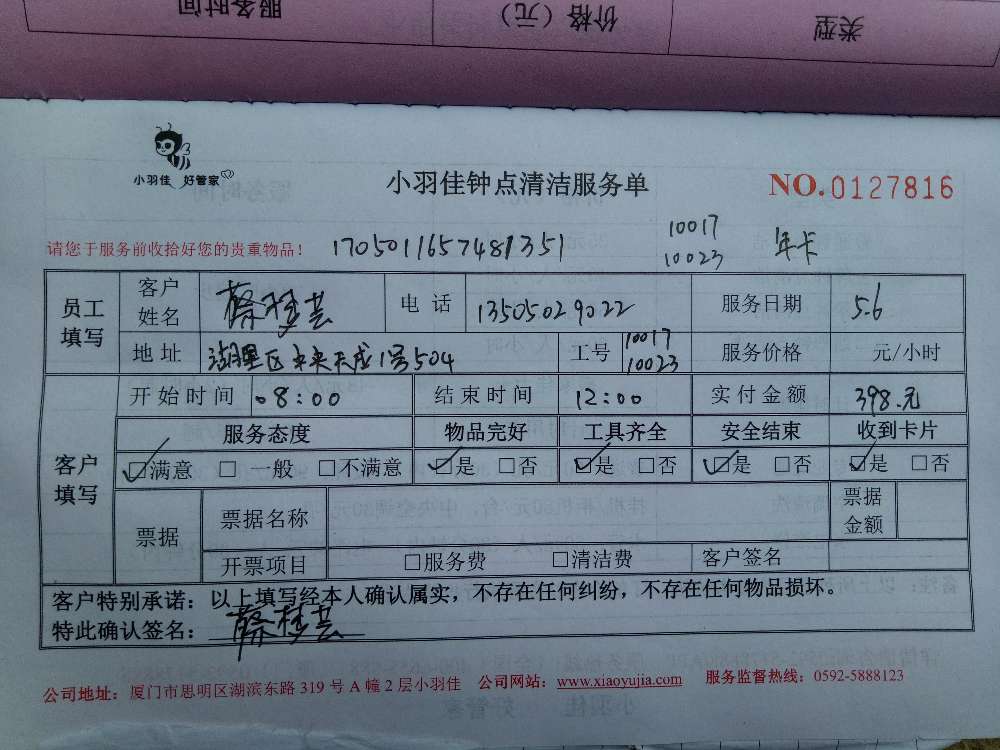 类型 价格（元） 服务时间
小羽佳 好管家
小羽佳钟点清洁服务单
NO.0127816
请您于服务前收拾好您的贵重物品！ 1705011657481351 10017 年卡
10023
员工填写 客户姓名 蔡梦芸 电话 13505029022 服务日期 5.6
地址 湖里区未来天成1号504 工号 10017 10023 服务价格 元/小时
客户填写 开始时间 08:00 结束时间 12:00 实付金额 398.元
服务态度 物品完好 工具齐全 安全结束 收到卡片
☑满意 □一般 □不满意 ☑是 □否 ☑是 □否 ☑是 □否 ☑是 □否
票据 票据名称 票据金额
开票项目 □服务费 □清洁费 客户签名
客户特别承诺：以上填写经本人确认属实，不存在任何纠纷，不存在任何物品损坏。
特此确认签名：蔡梦芸
公司地址：厦门市思明区湖滨东路 319 号 A 幢 2 层小羽佳 公司网站：www.xiaoyujia.com 服务监督热线：0592-5888123